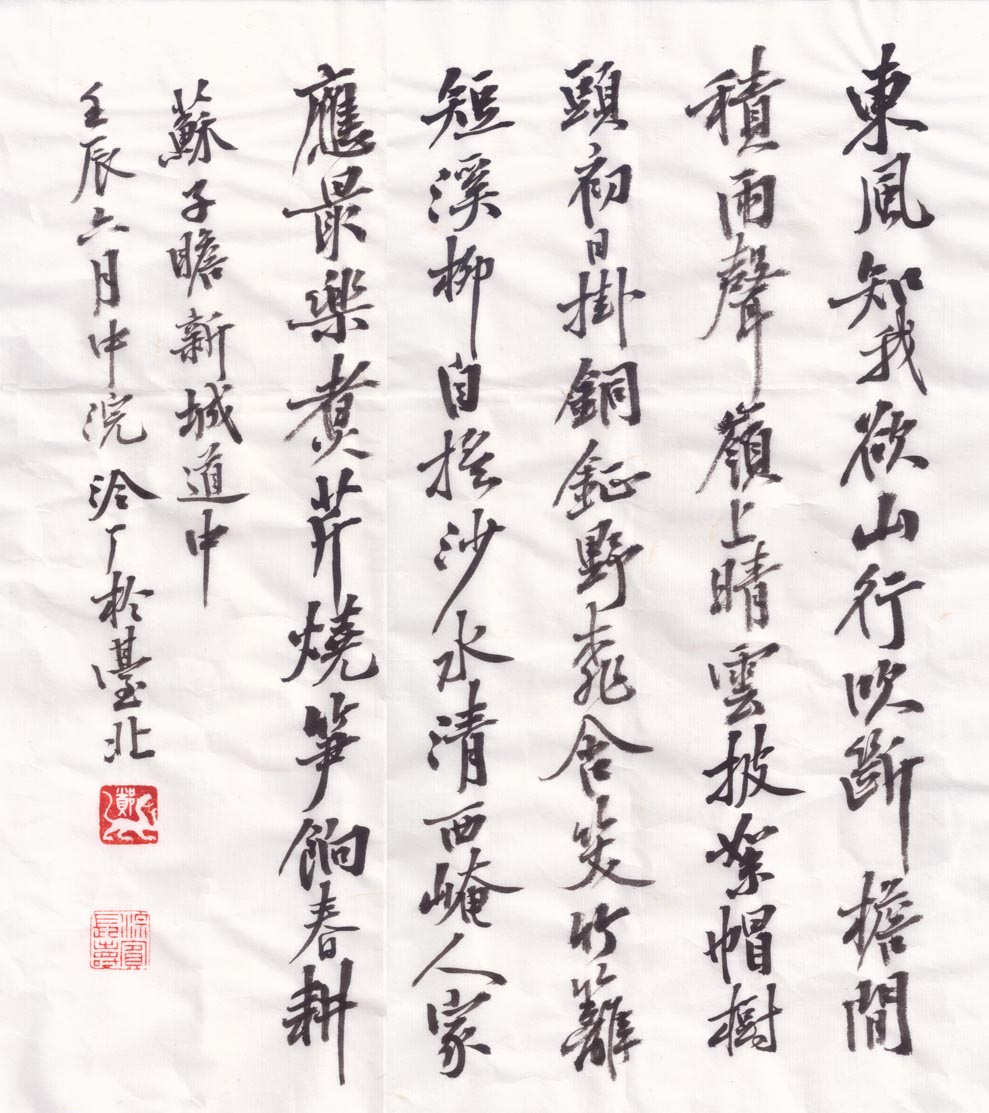 東風知我欲山行吹斷檐間
積雨聲嶺上晴雲披絮帽樹
頭初日掛銅鉦野桃含笑竹籬
短溪柳自搖沙水清西崦人家
應最樂煮芹燒笋餉春耕
蘇子瞻新城道中
壬辰六月中浣 於臺北
鄭